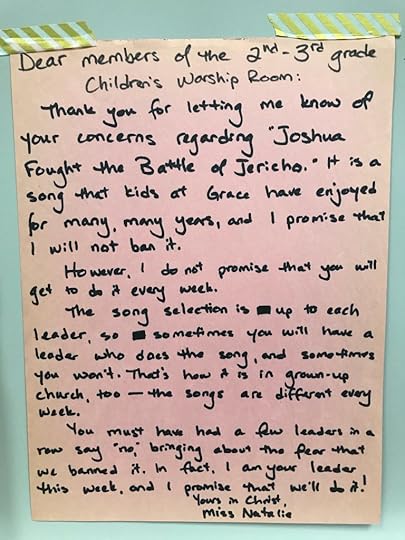 Dear members of the 2nd-3rd grade
Children's Worship Room:
Thank you for letting me know of
your concerns regarding "Joshua
Fought the Battle of Jericho." It is a
song that kids at Grace have enjoyed
for many, many years, and I promise that
I will not ban it.
However, I do not promise that you will
get to do it every week.
The song selection is up to each
leader, so sometimes you will have a
leader who does the song, and sometimes
you won't. That's how it is in grown-up
church, too — the songs are different every
week.
You must have had a few leaders in a
row say "no," bringing about the fear that
we banned it. In fact, I am your leader
this week, and I promise that we'll do it!
Yours in Christ,
Miss Natalie